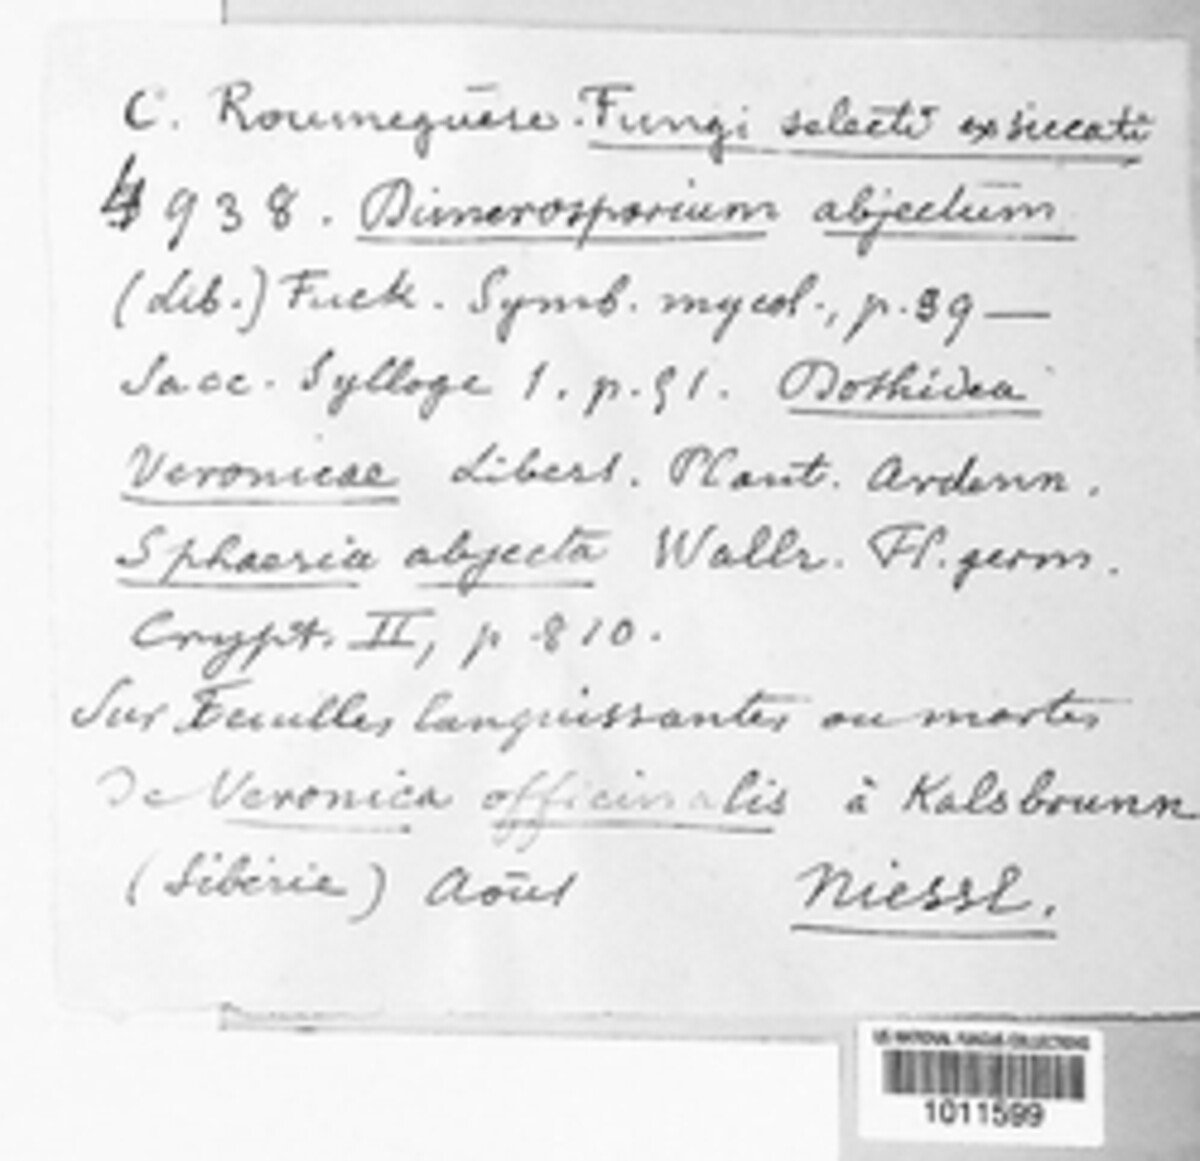 C. Roumeguère. Fungi selecti exsiccati
4938. Dimerosporium abjectum
(Lib.) Fuck. Symb. mycol., p. 89 —
Sacc. Sylloge 1. p. 51. Dothidea
Veronicae Libert. Plant. Ardenn.
Sphaeria abjecta Wallr. Fl. germ.
Crypt. II, p 810.
Sur Feuilles languissantes ou mortes
de Veronica officinalis à Kalsbrunn
(Sibérie) Août Niessl.
US NATIONAL FUNGUS COLLECTIONS
1011599